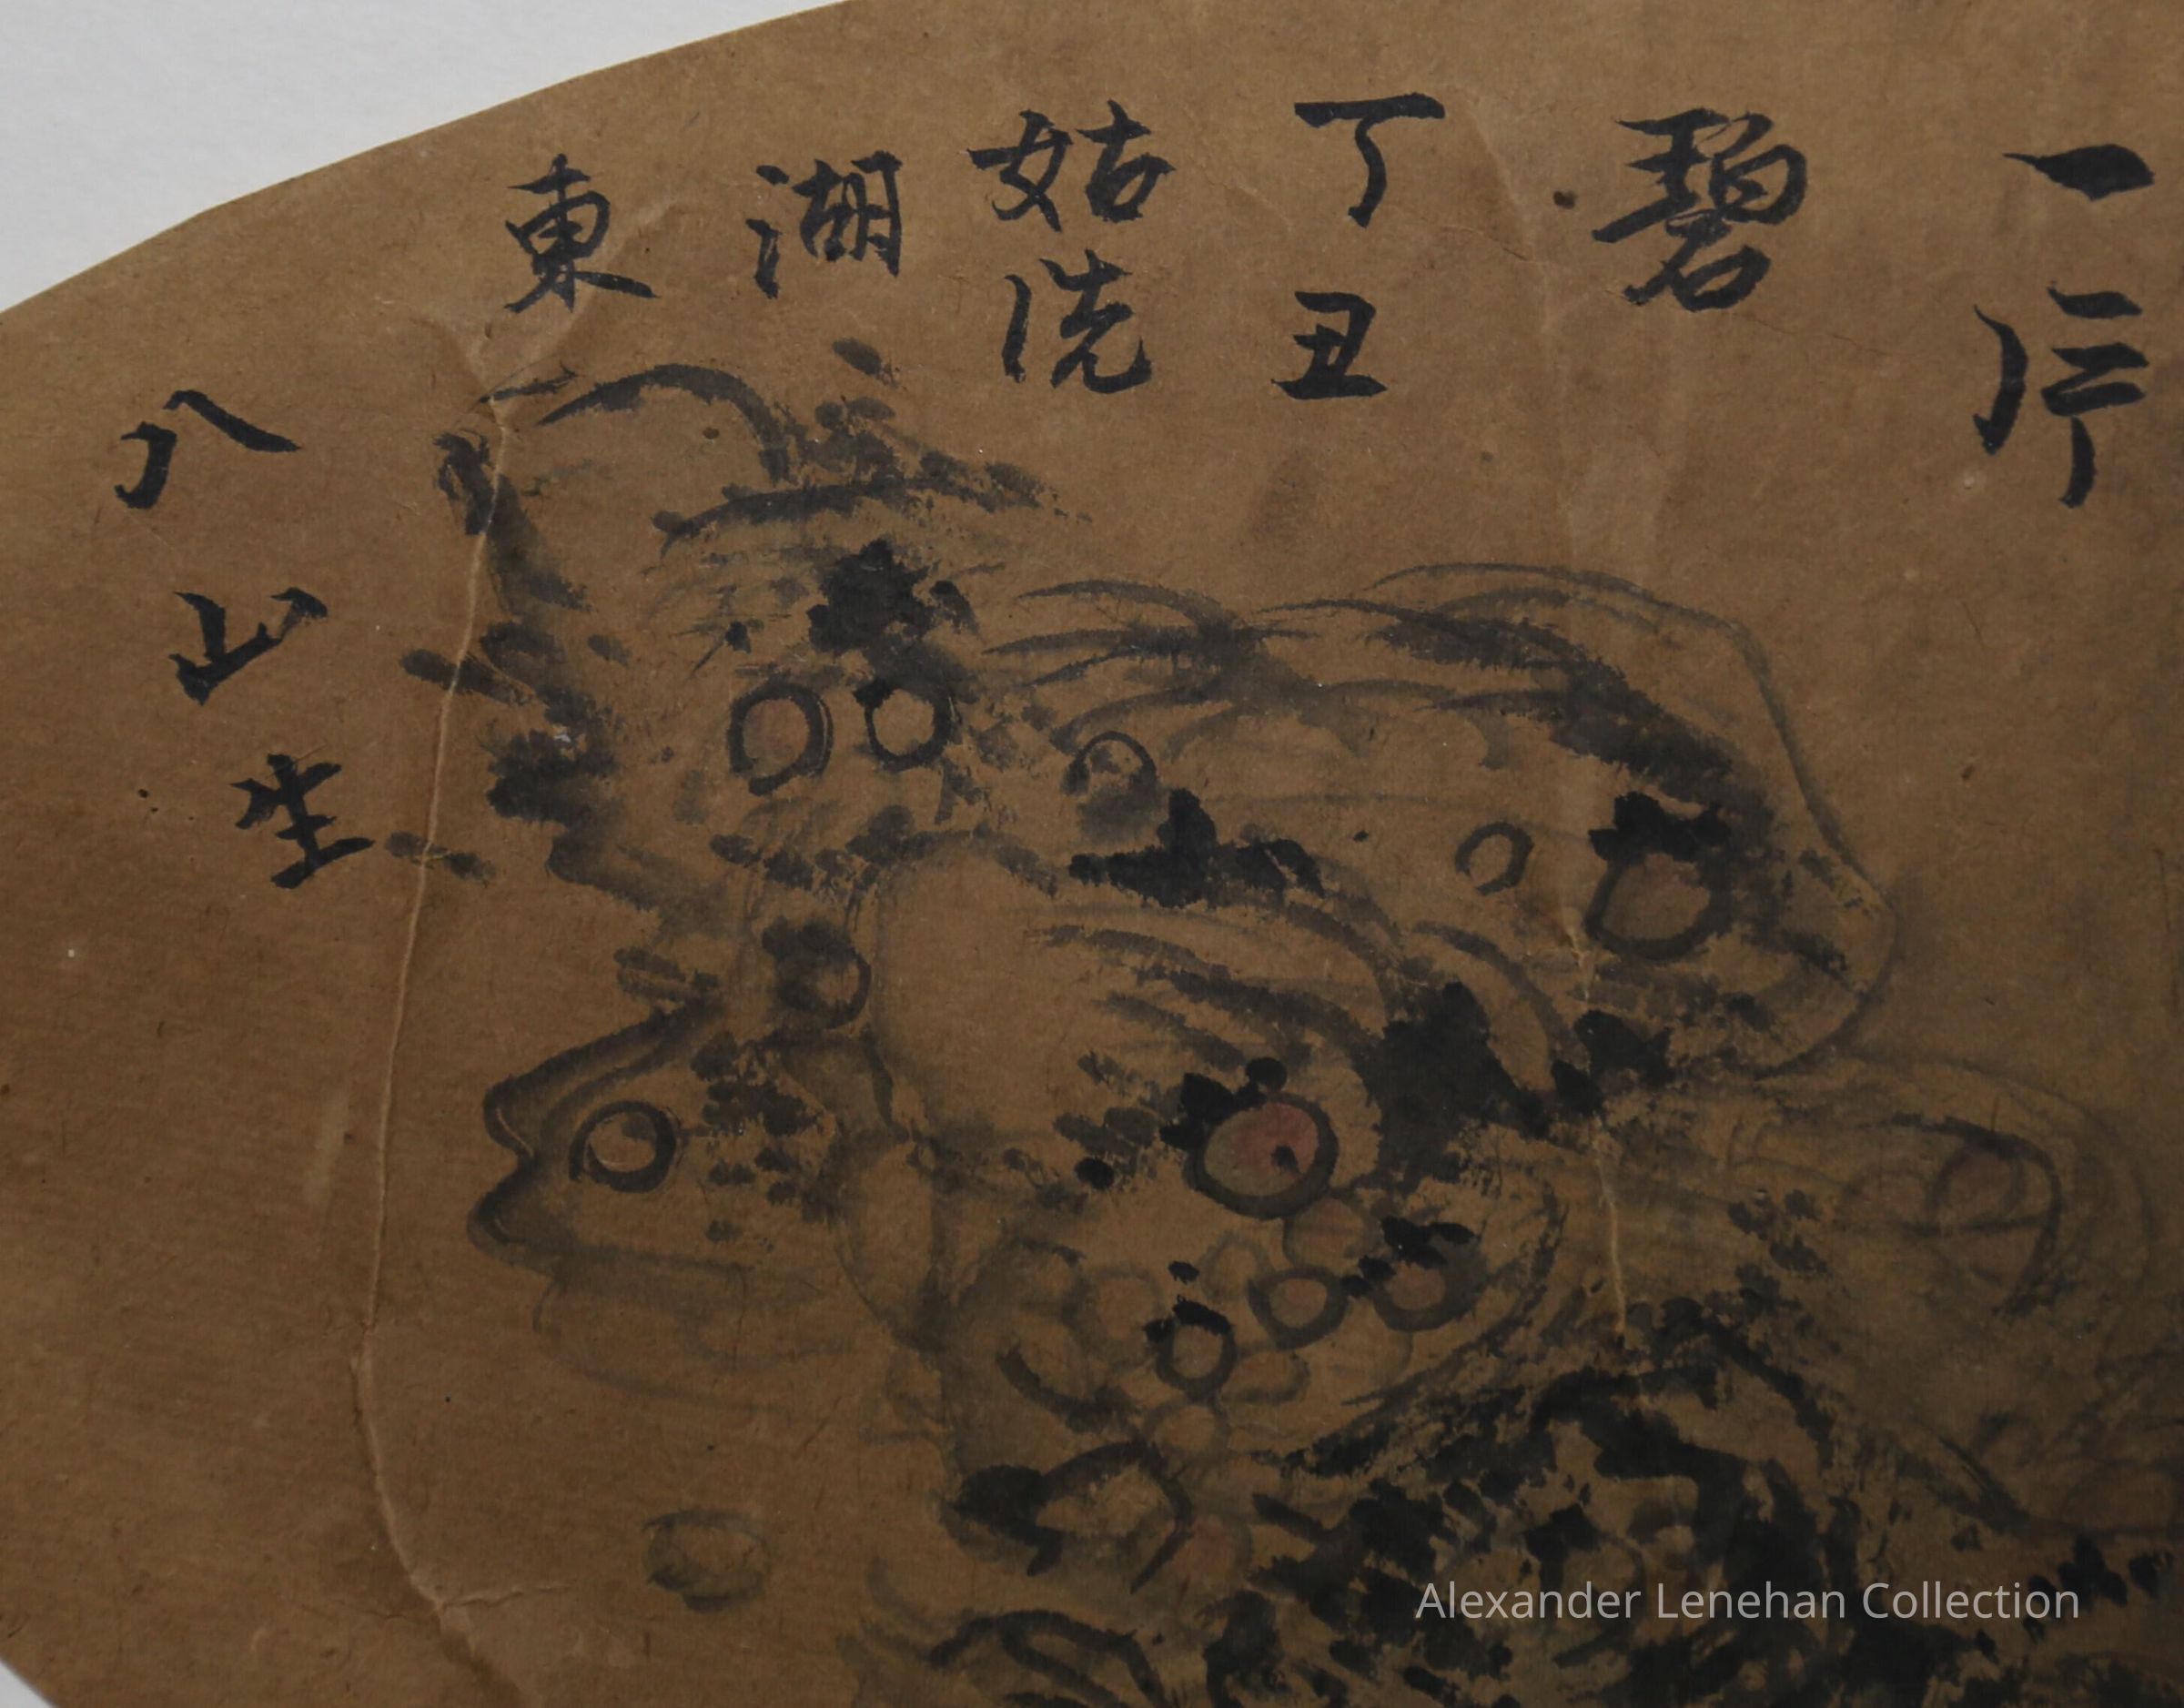 一片
碧
丁丑
姑洗
湖
東
八山生
Alexander Lenehan Collection